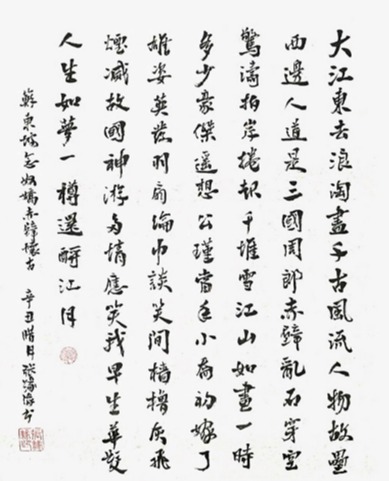 大江東去浪淘盡千古風流人物故壘
西邊人道是三國周郎赤壁亂石穿空
驚濤拍岸捲起千堆雪江山如畫一時
多少豪傑遥想公瑾當年小喬初嫁了
雄姿英發羽扇綸巾談笑間檣櫓灰飛
煙滅故國神游多情應笑我早生華髮
人生如夢一樽還酹江月
蘇東坡念奴嬌赤壁懷古 辛丑腊月